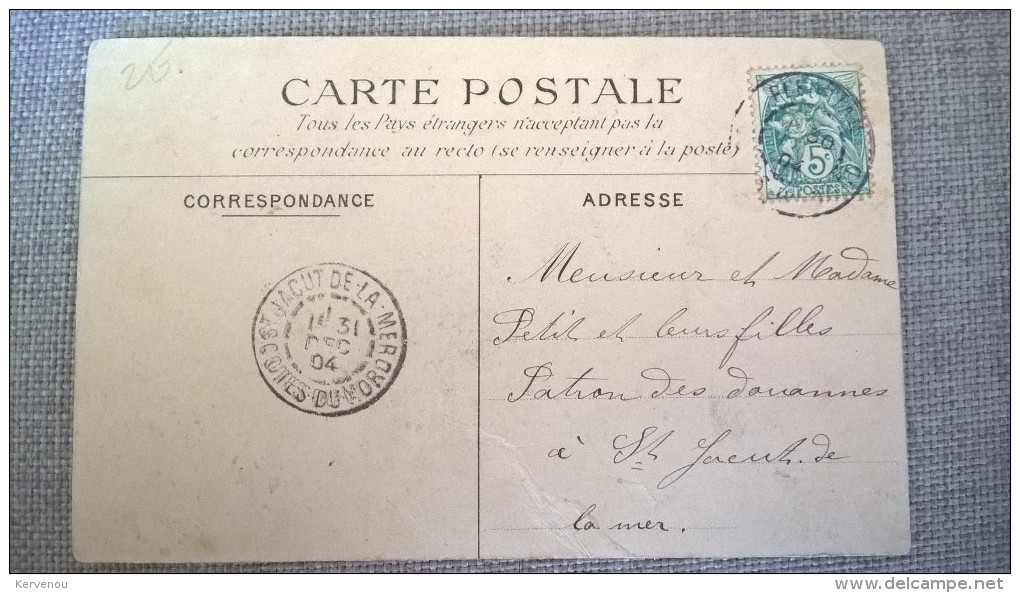 26.
CARTE POSTALE
Tous les Pays étrangers n'acceptant pas la
correspondance au recto (se renseigner à la poste)
5c
POSTES
04
CORRESPONDANCE
ADRESSE
Monsieur et Madame
Petit et leurs filles
Patron des douannes
à St Jacut. de
la mer.
ST JACUT DE-LA-MER
31
DEC
04
COTES-DU-NORD
Kervenou
www.delcampe.net